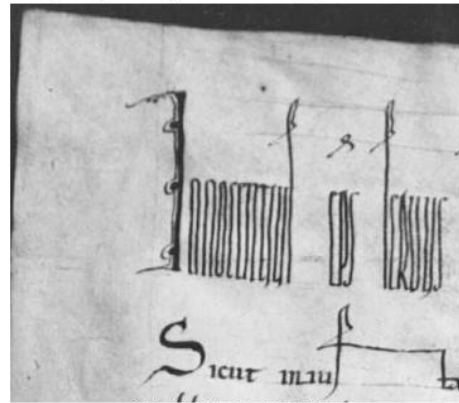 INNOCENTIUS EPS SERUUS
Sicut iniuſt